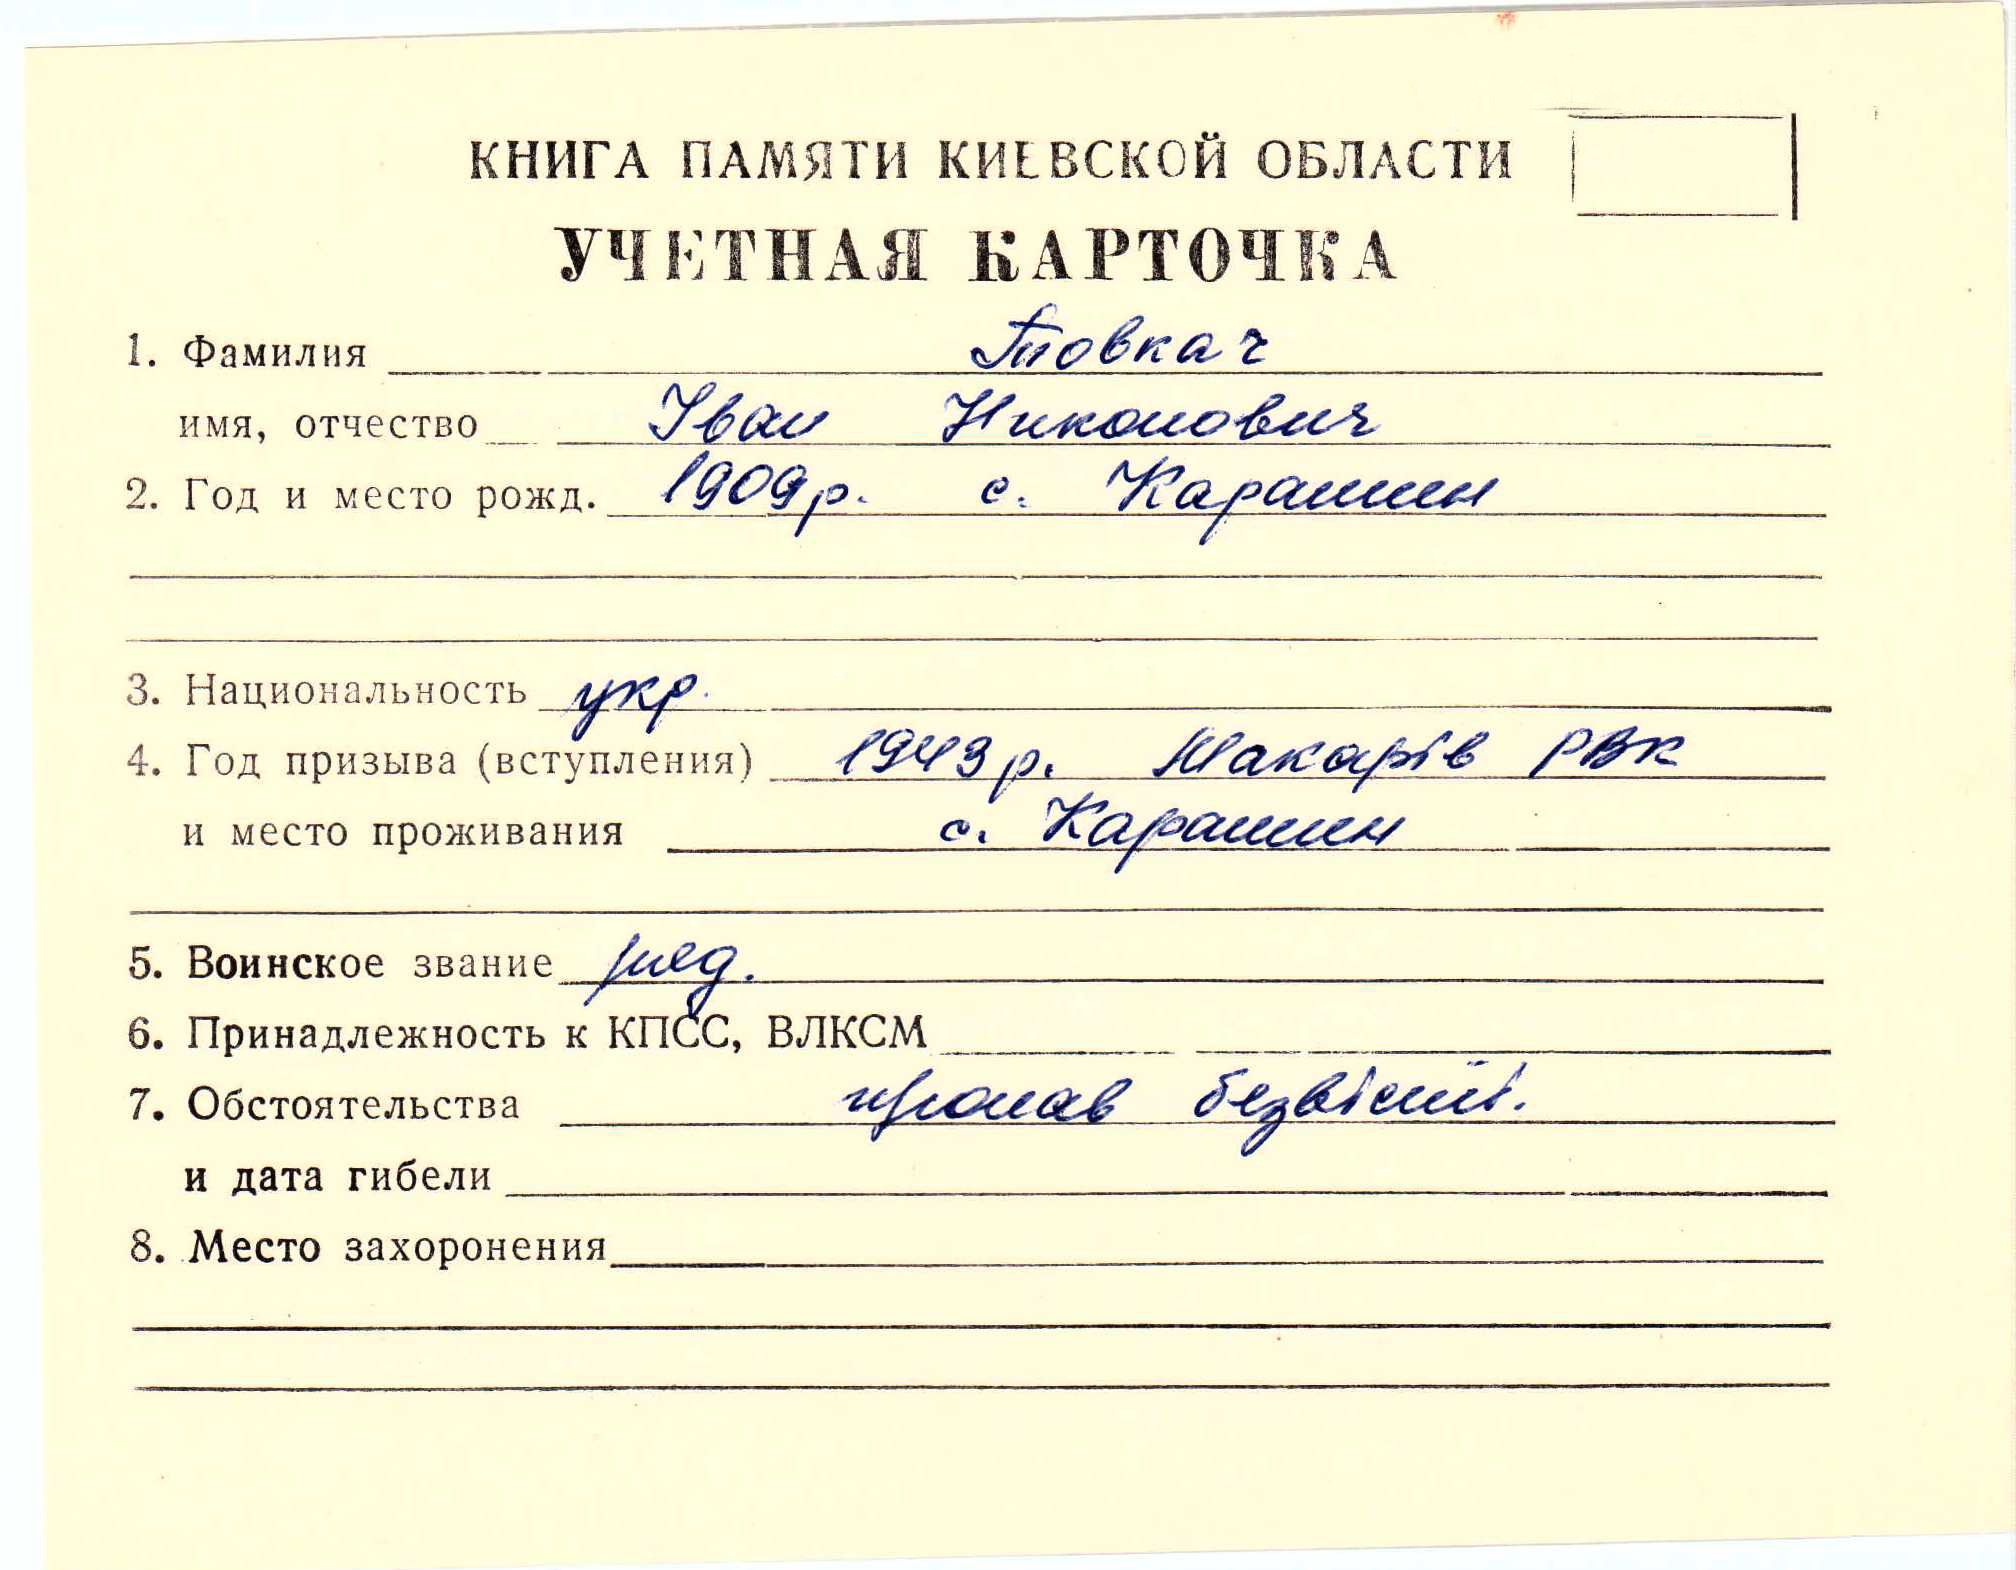 КНИГА ПАМЯТИ КИЕВСКОЙ ОБЛАСТИ
УЧЕТНАЯ КАРТОЧКА
1. Фамилия Товкач
имя, отчество Іван Никонович
2. Год и место рожд. 1909 р. с. Карашин
3. Национальность укр.
4. Год призыва (вступления) 1943 р. Макарів РВК
и место проживания с. Карашин
5. Воинское звание ряд.
6. Принадлежность к КПСС, ВЛКСМ
7. Обстоятельства пропав безвісті.
и дата гибели
8. Место захоронения